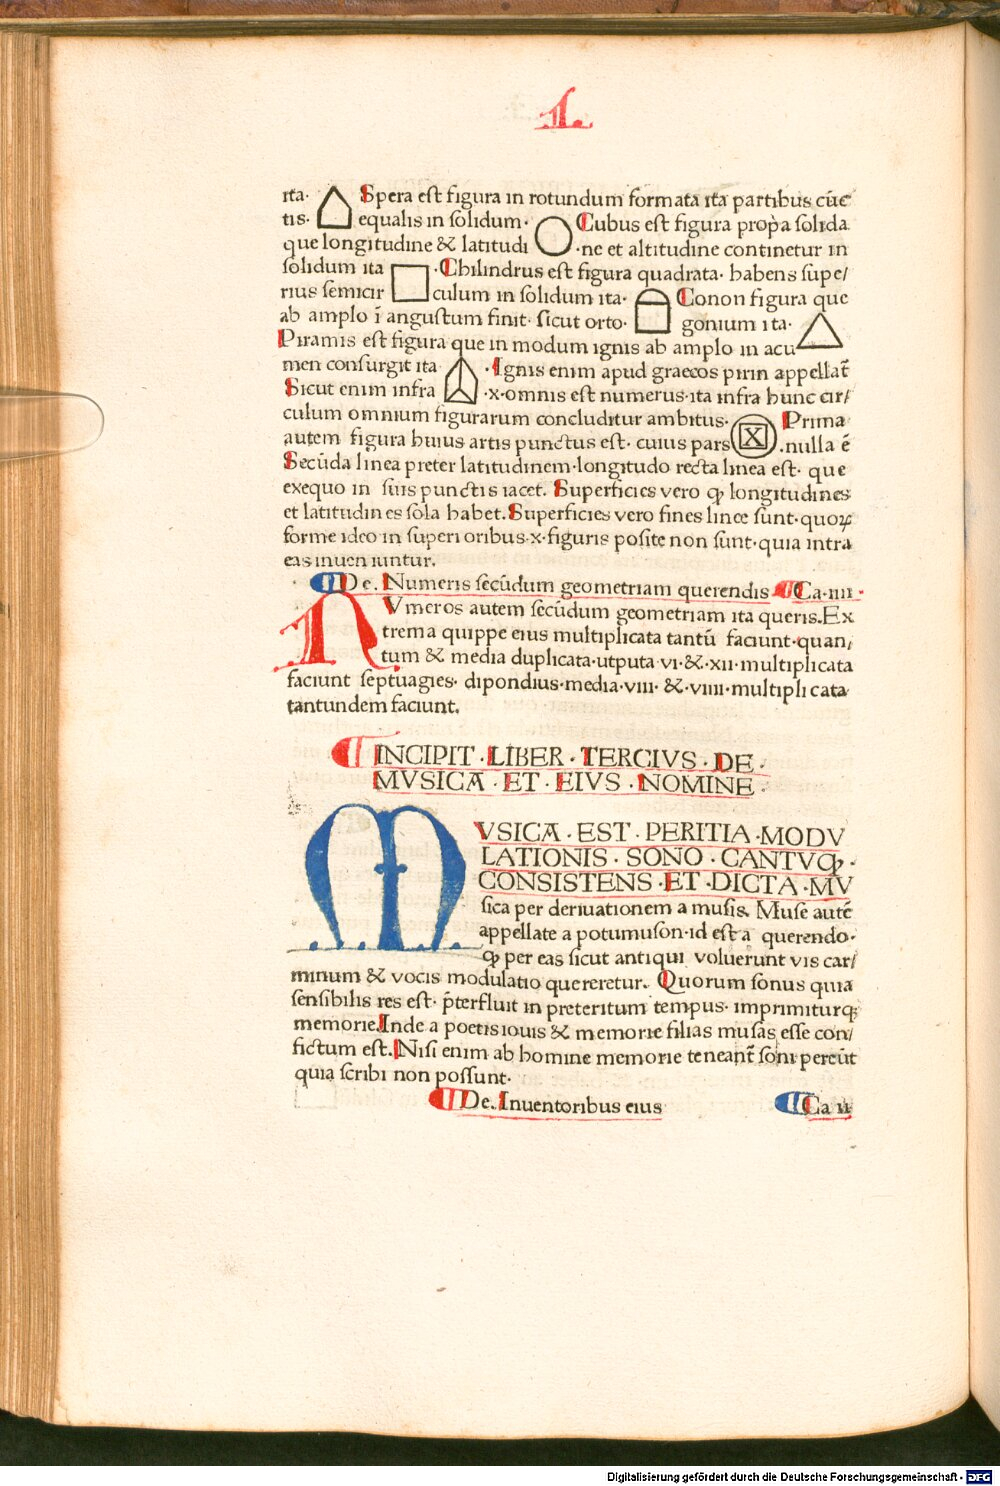 1.
ita· Spera est figura in rotundum formata ita partibus cūc
tis· equalis in solidum· Cubus est figura propa solida
que longitudine & latitudi ·ne et altitudine continetur in
solidum ita ·Chilindrus est figura quadrata· habens supe/
rius semicir culum in solidum ita· Conon figura que
ab amplo ī angustum finit· sicut orto· gonium ita·
Piramis est figura que in modum ignis ab amplo in acu
men consurgit ita ·Ignis enim apud graecos pirin appellat̄
Sicut enim infra ·x·omnis est numerus·ita infra hunc cir/
culum omnium figurarum concluditur ambitus· Prima
X
autem figura huius artis punctus est· cuius pars .nulla ē
Secūda linea preter latitudinem·longitudo recta linea est· que
exequo in suis punctis iacet. Superficies vero ꝙ longitudines
et latitudines sola habet. Superficies vero fines linee sunt·quoꝝ
forme ideo in superioribus·x·figuris posite non sunt·quia intra
eas inueniuntur.
De. Numeris secūdum geometriam querendis Ca·iiii·
NVmeros autem secūdum geometriam ita queris. Ex
trema quippe eius multiplicata tantū faciunt·quan/
tum & media duplicata·utputa·vi·&·xii·multiplicata
faciunt septuagies· dipondius·media·viii· &·viiii·multiplicata
tantundem faciunt.
INCIPIT·LIBER·TERCIVS·DE·
MVSICA·ET·EIVS·NOMINE·
MVSICA·EST·PERITIA·MODV
LATIONIS·SONO·CANTVꝙ·
CONSISTENS·ET·DICTA·MV
sica per deriuationem a musis. Muse autē
appellate a potumuson·id est a querendo·
ꝙ per eas sicut antiqui voluerunt vis car/
minum & vocis modulatio quereretur. Quorum sonus quia
sensibilis res est· p̄terfluit in preteritum tempus· imprimiturꝙ
memorie. Inde a poetis iouis & memorie filias musas esse con/
fictum est. Nisi enim ab homine memorie teneant̄ soni pereūt
quia scribi non possunt·
De. Inuentoribus eius Ca ii
Digitalisierung gefördert durch die Deutsche Forschungsgemeinschaft · DFG